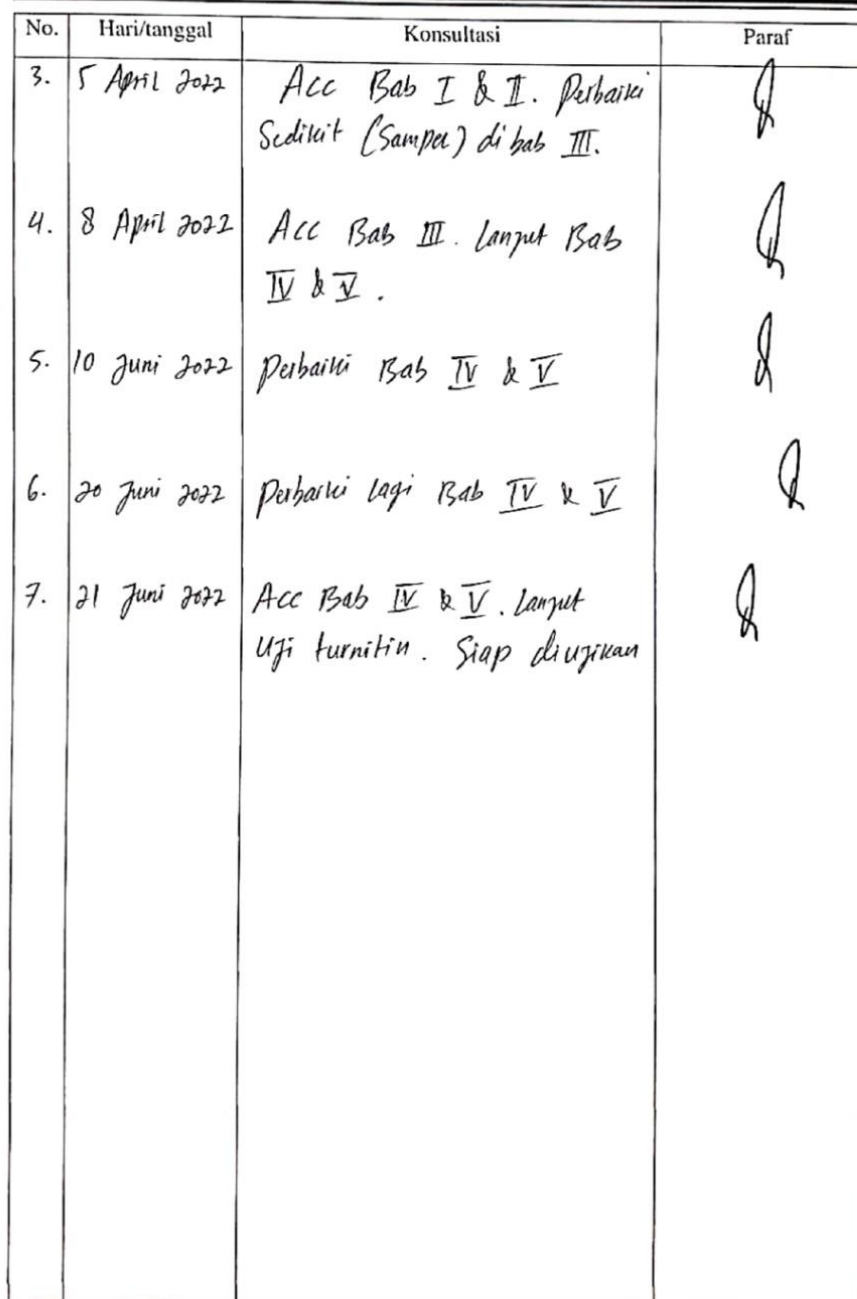 No. Hari/tanggal Konsultasi Paraf
3. 5 April 2022 Acc Bab I & II. Perbaiki
Sedikit (Sampel) di bab III.
4. 8 April 2022 Acc Bab III. Lanjut Bab
IV & V.
5. 10 Juni 2022 Perbaiki Bab IV & V
6. 20 Juni 2022 Perbaiki lagi Bab IV & V
7. 21 Juni 2022 Acc Bab IV & V. Lanjut
Uji turnitin. Siap diujikan